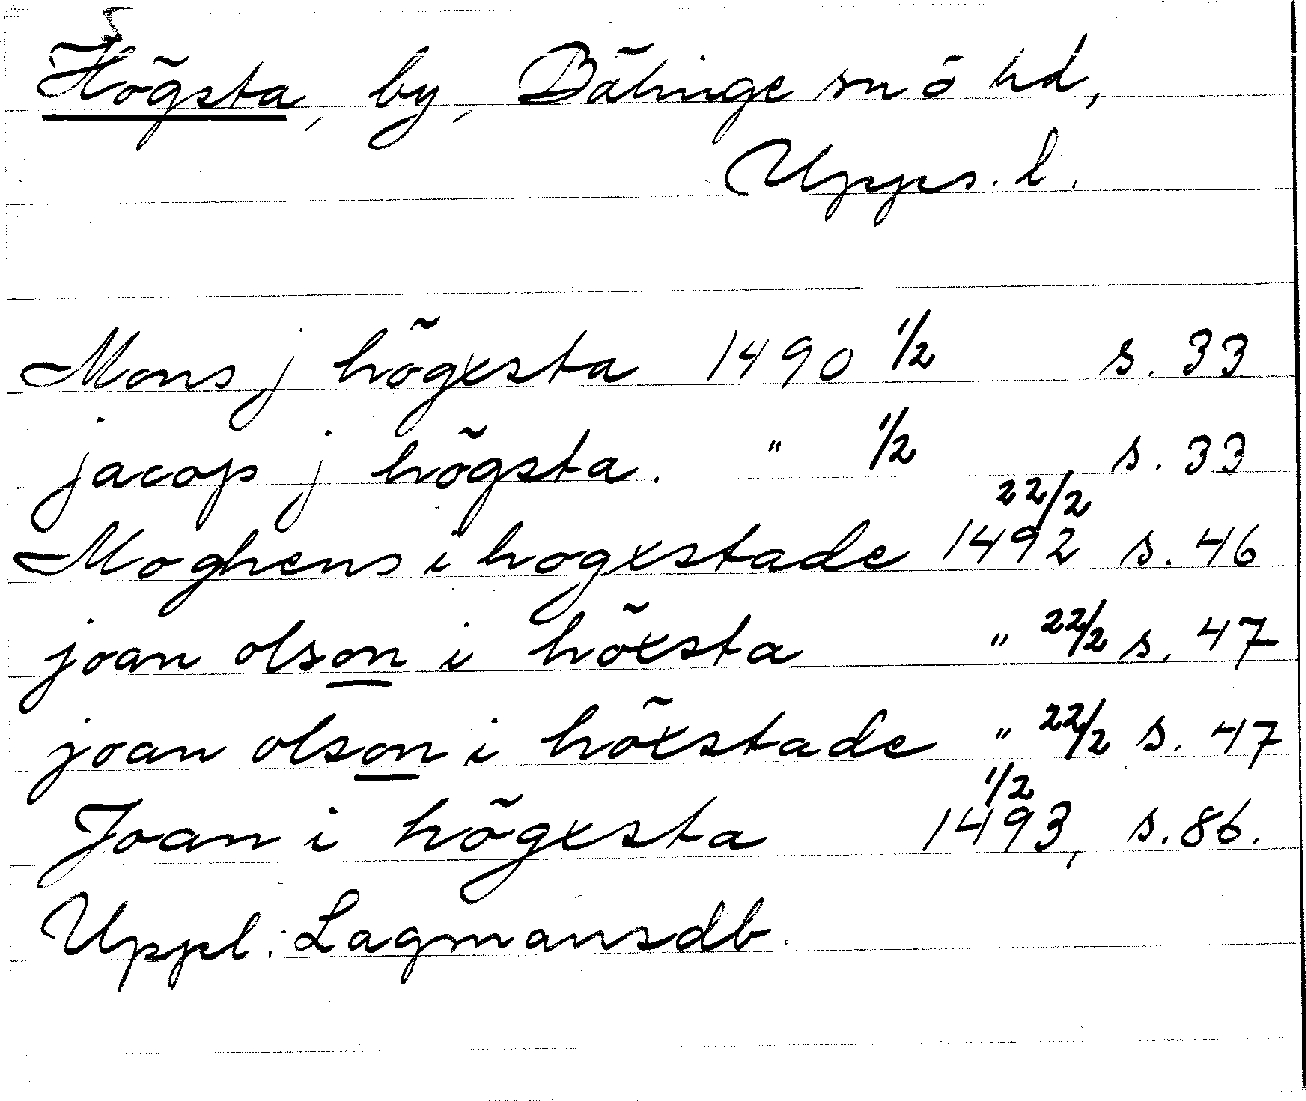 Högsta, by, Bälinge sn o hd,
Upps. l.
Mons j högxsta 1490 1/2 s. 33
jacop j högsta. " 1/2 s. 33
Moghens i hogxstade 1492 22/2 s. 46
joan olson i höxsta " 22/2 s. 47
joan olson i höxstade " 22/2 s. 47
Joan i högxsta 1493, 1/2 s. 86.
Uppl. Lagmansdb.